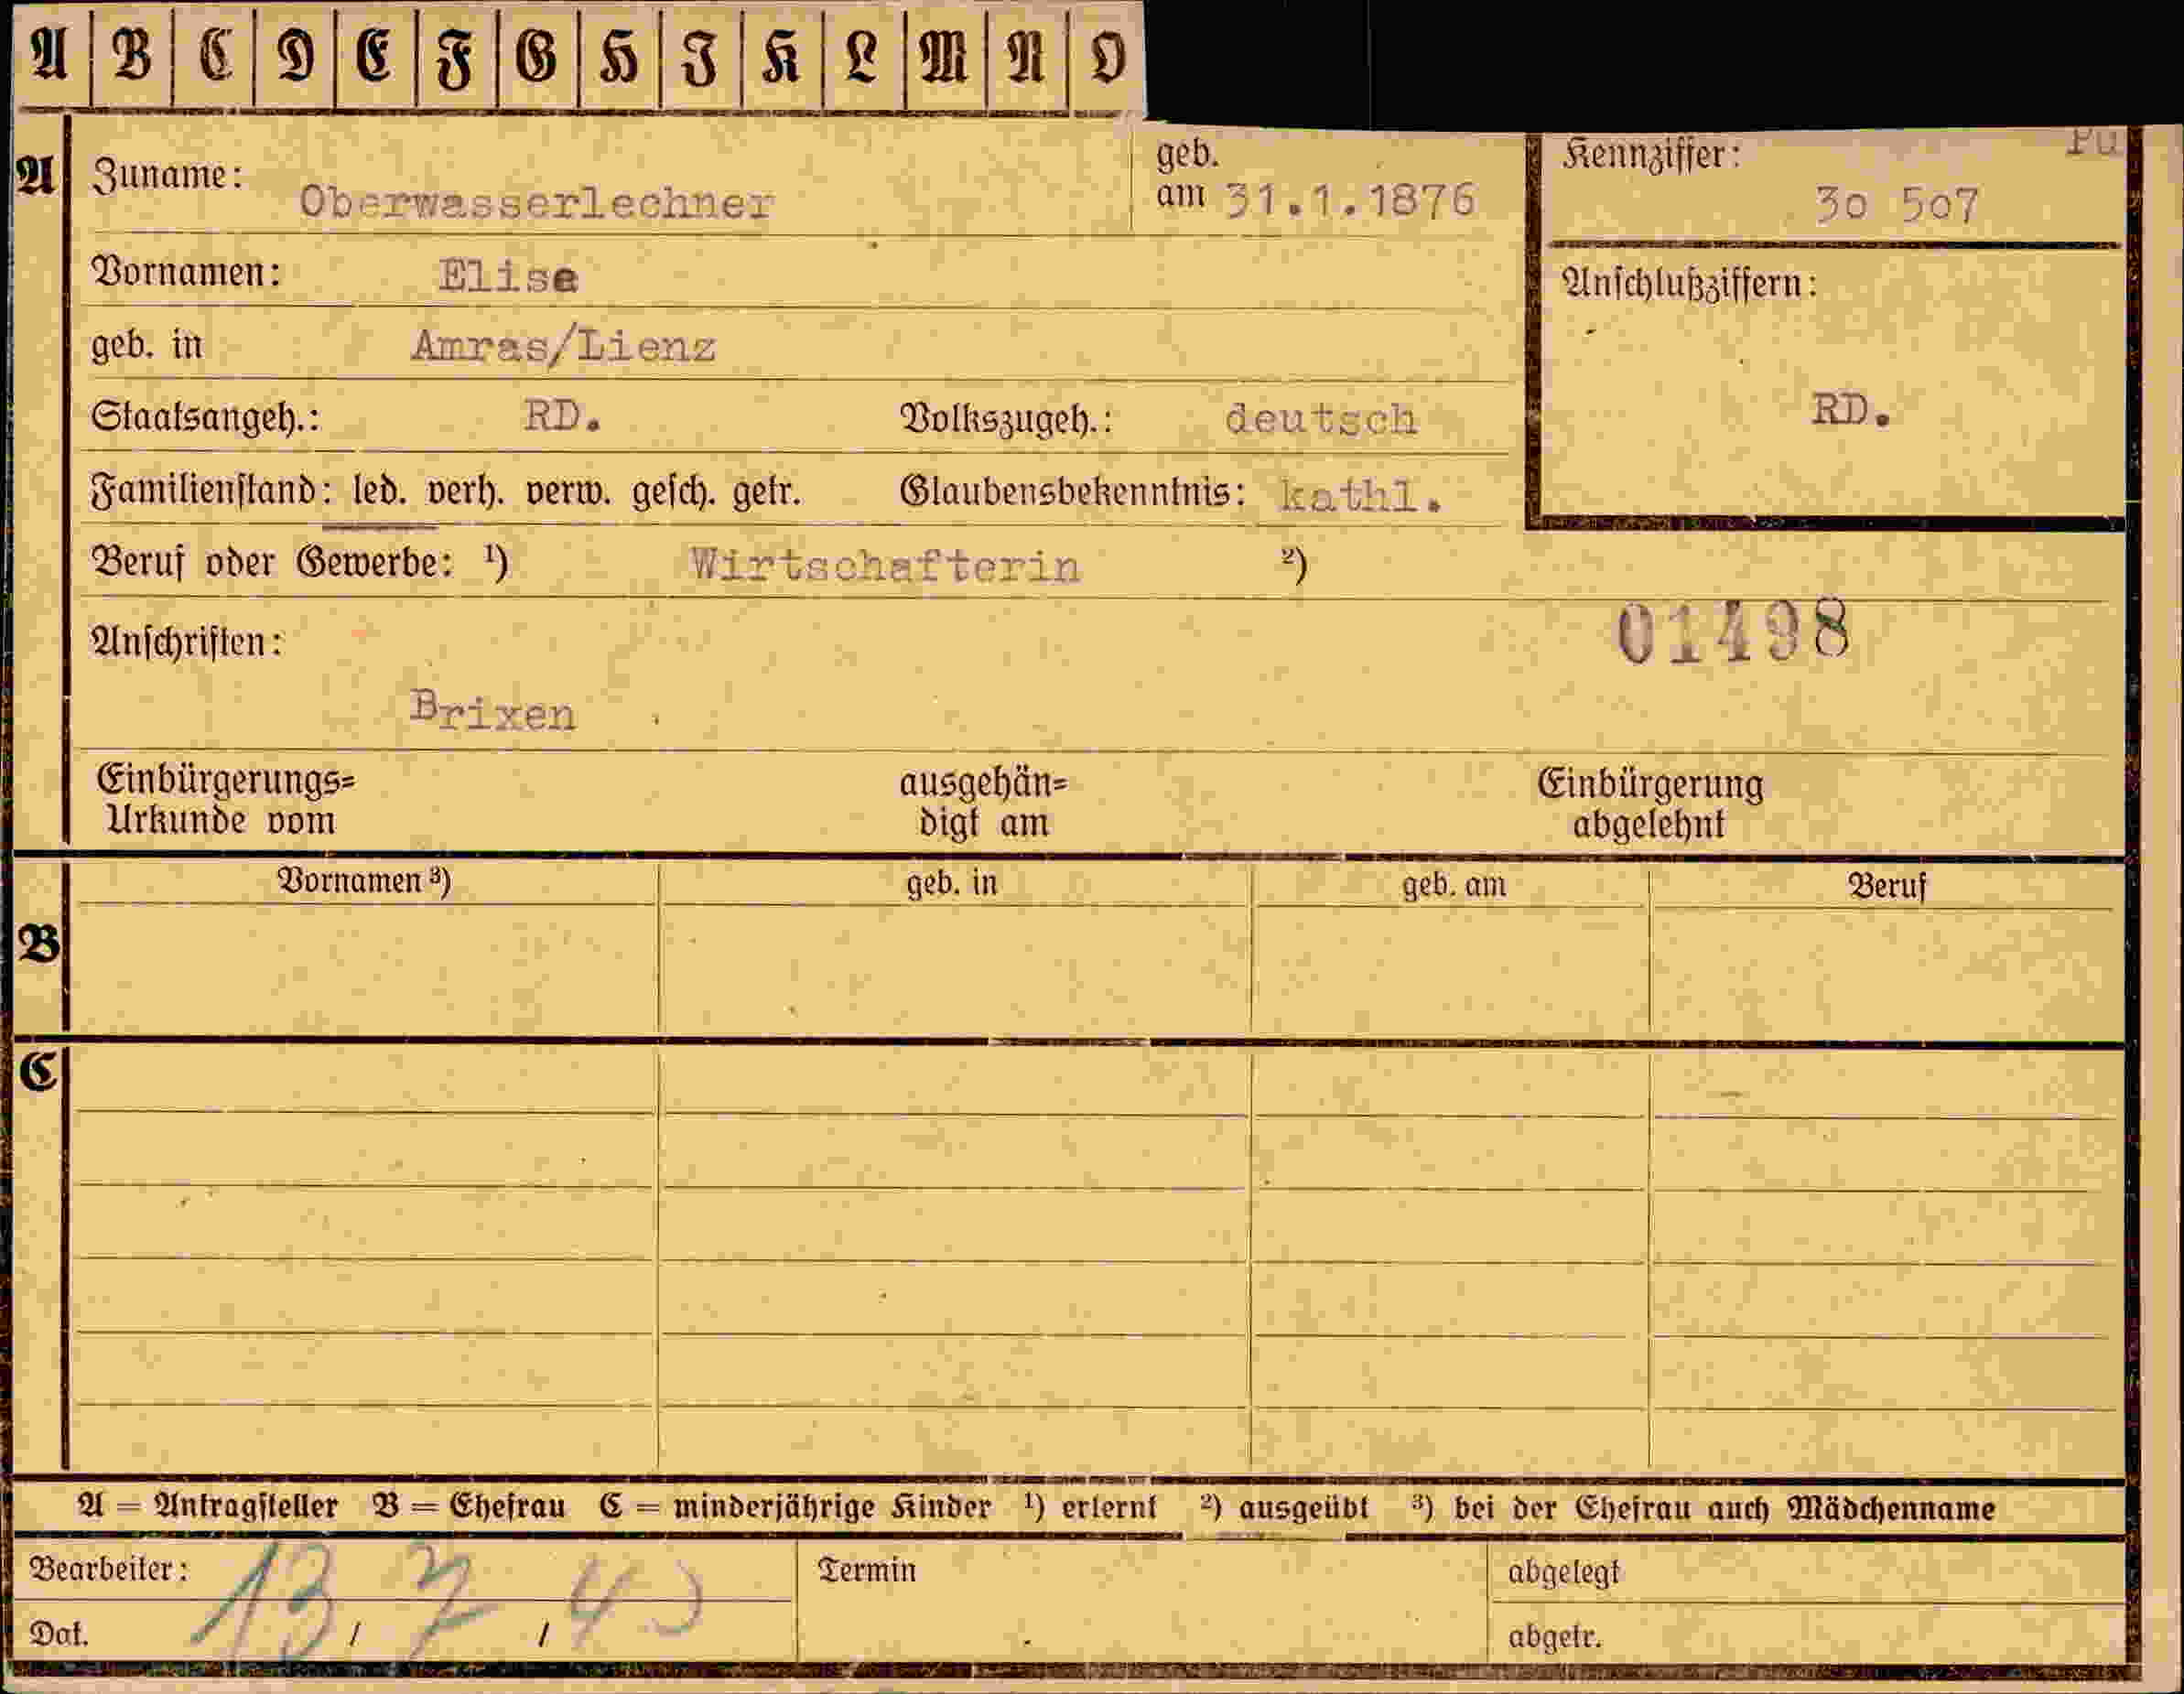 A B C D E F G H I K L M N O
A Zuname: Oberwasserlechner geb. am 31.1.1876
Kennziffer: 30 507
Vornamen: Elise
Anschlußziffern: RD.
geb. in Amras/Lienz
Staatsangeh.: RD. Volkszugeh.: deutsch
Familienstand: led. verh. verw. gesch. getr. Glaubensbekenntnis: kathl.
Beruf oder Gewerbe: ¹) Wirtschafterin ²)
Anschriften: 01498
Brixen
Einbürgerungs= ausgehän= Einbürgerung
Urkunde vom digt am abgelehnt
Vornamen ³) geb. in geb. am Beruf
B
C
A = Antragsteller B = Ehefrau C = minderjährige Kinder ¹) erlernt ²) ausgeübt ³) bei der Ehefrau auch Mädchenname
Bearbeiter: Termin abgelegt
Dat. 13 / 7 / abgetr.